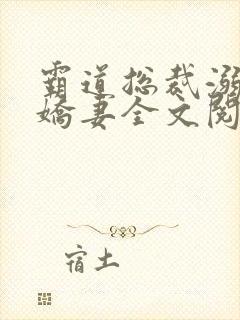 霸道总裁溺
娇妻全文阅
宿土